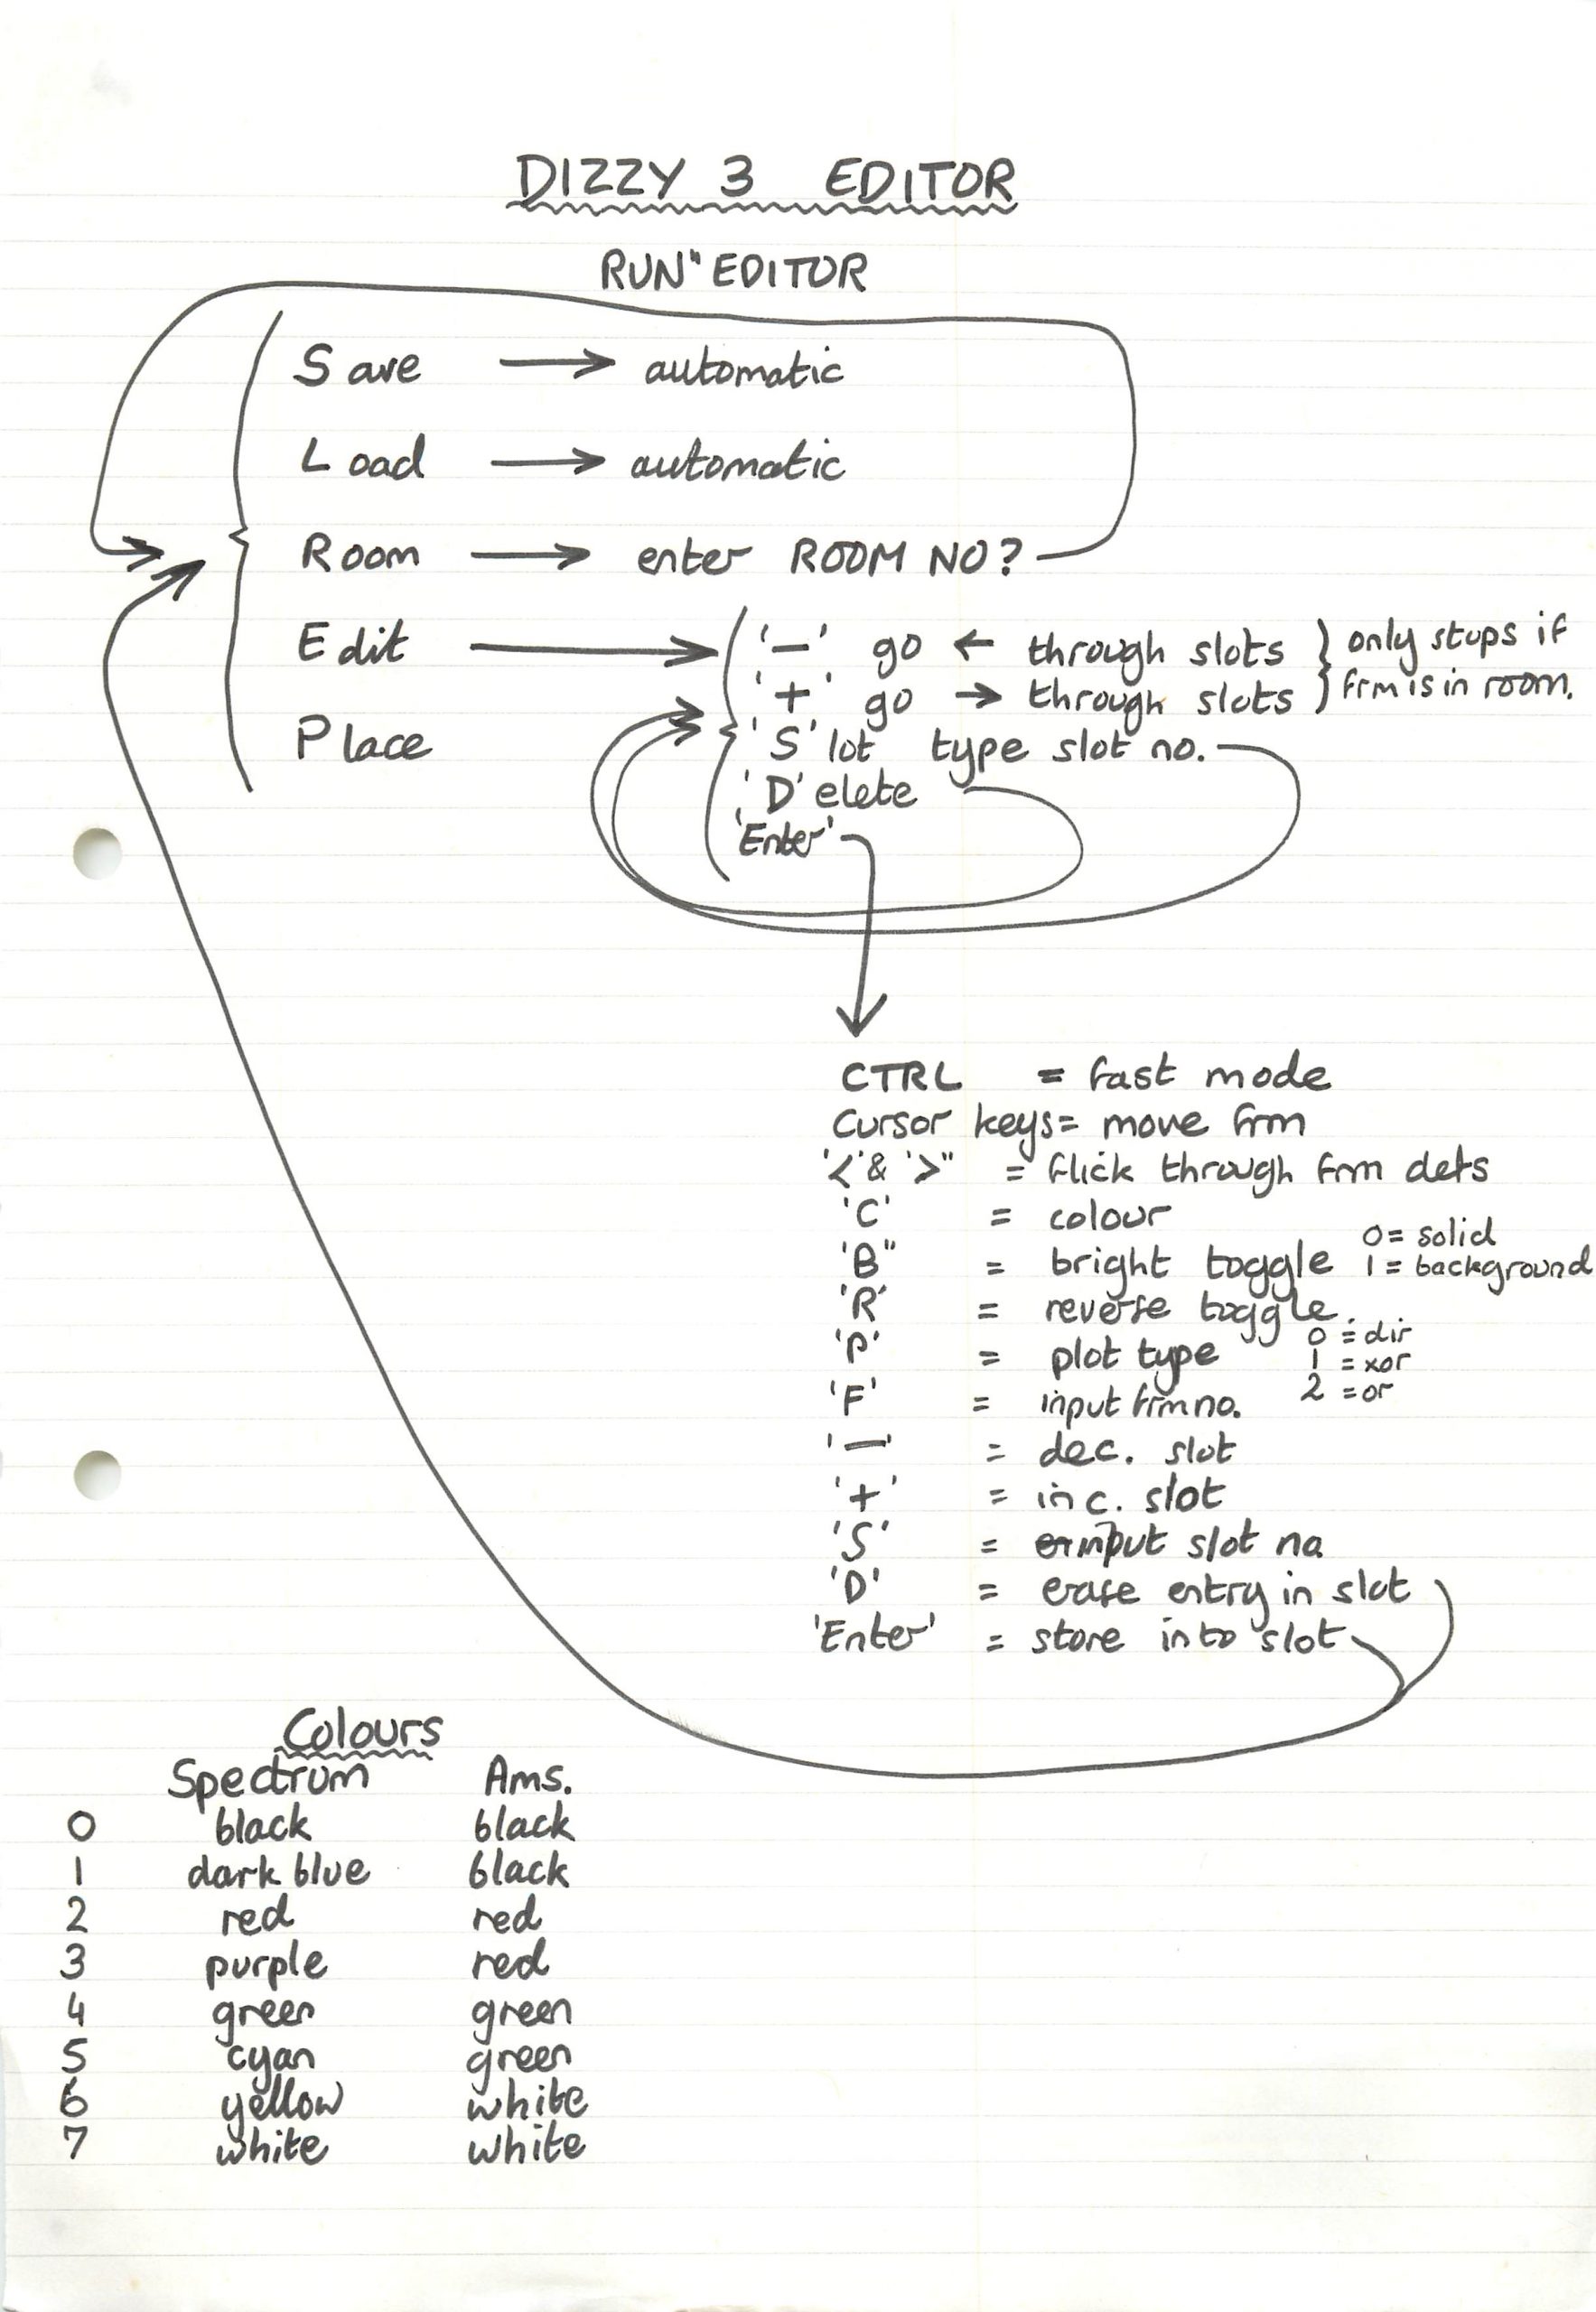 DIZZY 3 EDITOR
RUN"EDITOR
Save → automatic
Load → automatic
Room → enter ROOM NO?
Edit → '-' go ← through slots } only stops if
'+' go → through slots } frm is in room.
Place
'S'lot type slot no.
'D'elete
'Enter'
CTRL = fast mode
Cursor keys = move frm
'<' & '>" = flick through frm dets
'C' = colour
'B" = bright toggle 0 = solid
1 = background
'R' = reverse toggle.
'P' = plot type 0 = dir
1 = xor
2 = or
'F' = input frm no.
'-' = dec. slot
'+' = inc. slot
'S' = input slot no
'D' = erase entry in slot
'Enter' = store into slot
Colours
Spectrum Ams.
0 black black
1 dark blue black
2 red red
3 purple red
4 green green
5 cyan green
6 yellow white
7 white white